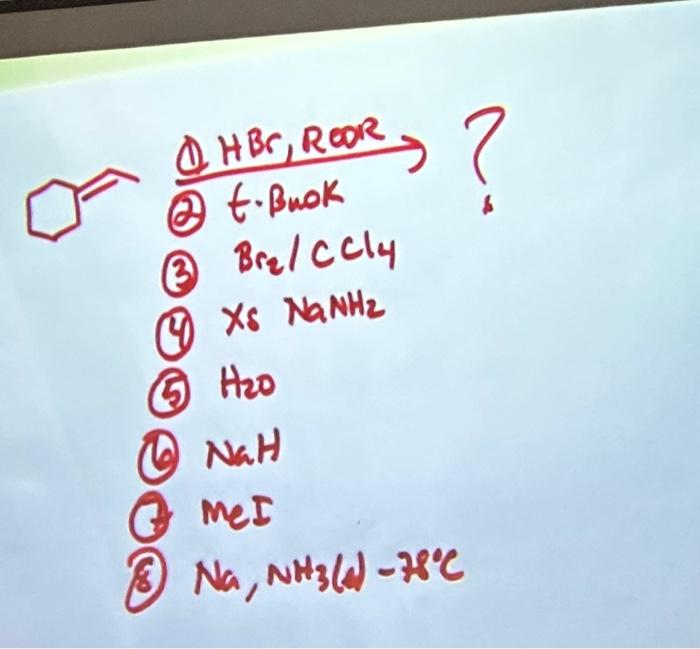 ① HBr, ROOR ?
② t-BuOK
③ Br2/CCl4
④ Xs NaNH2
⑤ H2O
⑥ NaH
⑦ MeI
⑧ Na, NH3(l) -78°C